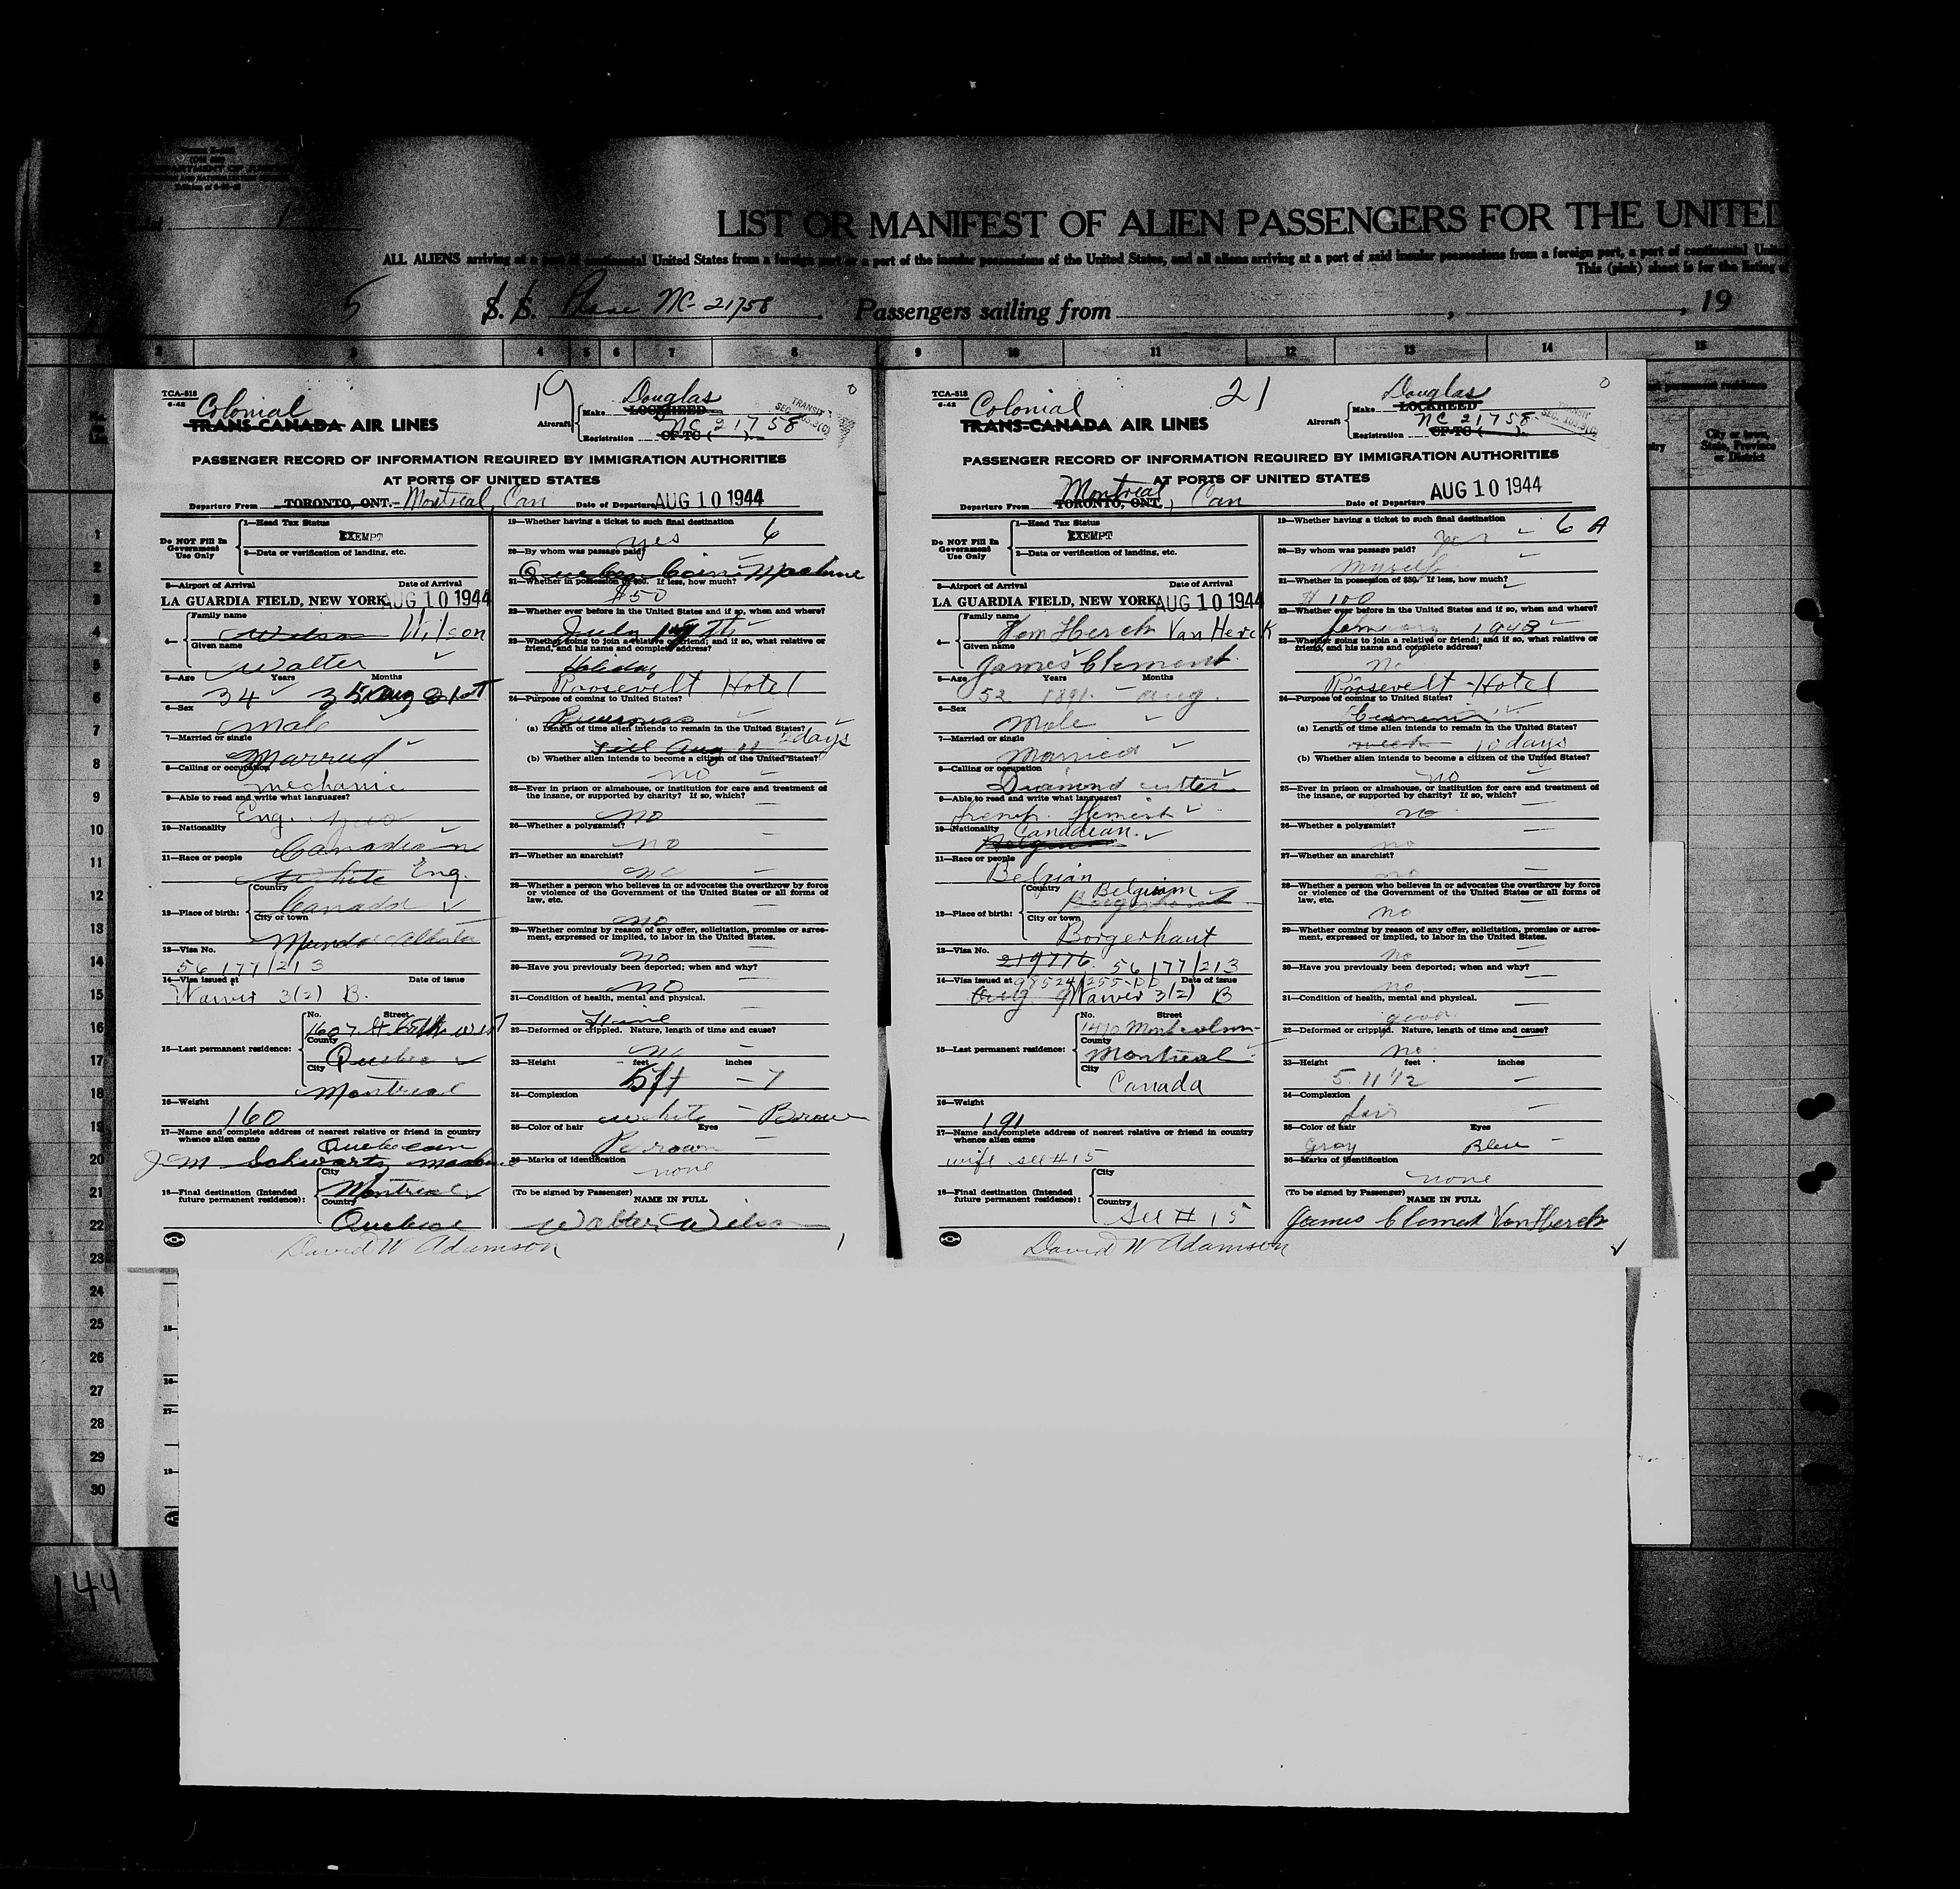 LIST OR MANIFEST OF ALIEN PASSENGERS FOR THE UNITED
ALL ALIENS arriving at a port of continental United States from a foreign port or a port of the insular possessions of the United States, and all aliens arriving at a port of said insular possessions from a foreign port, a port of continental
This (pink) sheet is for the listing of
5 S. S. Plane NC-21758. Passengers sailing from , , 19
2 3 4 5 6 7 8 9 10 11 12 13 14 15
TCA-518
6-42
Colonial
TRANS-CANADA AIR LINES
19
Aircraft
Make Douglas
LOCKHEED
Registration NC 21758
CF-TC ( )
TRANSIT
PASSENGER RECORD OF INFORMATION REQUIRED BY IMMIGRATION AUTHORITIES
AT PORTS OF UNITED STATES
Departure From TORONTO, ONT. Montreal, Can Date of Departure AUG 10 1944
Do NOT Fill In Government Use Only
1—Head Tax Status
EXEMPT
2—Data or verification of landing, etc.
3—Airport of Arrival Date of Arrival
LA GUARDIA FIELD, NEW YORK AUG 10 1944
4—
Family name
Wilson Wilson
Given name
Walter
5—Age Years Months
34
6—Sex
Male
7—Married or single
Married
8—Calling or occupation
mechanic
9—Able to read and write what languages?
Eng.
10—Nationality
Canadian
11—Race or people
White Eng.
12—Place of birth:
Country
Canada
City or town
13—Visa No.
56177/213
14—Visa issued at Date of issue
Waiver 3(2) B.
15—Last permanent residence:
No. Street
1607
County
Quebec
City
Montreal
16—Weight
160
17—Name and complete address of nearest relative or friend in country whence alien came
J M Schwartz
18—Final destination (Intended future permanent residence):
City
Montreal
Country
Quebec
19—Whether having a ticket to such final destination
yes 6
20—By whom was passage paid?
Quebec Coin Machine
21—Whether in possession of $50. If less, how much?
$50
22—Whether ever before in the United States and if so, when and where?
July
23—Whether going to join a relative or friend; and if so, what relative or friend, and his name and complete address?
Holiday
Roosevelt Hotel
24—Purpose of coming to United States?
(a) Length of time alien intends to remain in the United States?
till Aug days
(b) Whether alien intends to become a citizen of the United States?
no
25—Ever in prison or almshouse, or institution for care and treatment of the insane, or supported by charity? If so, which?
no
26—Whether a polygamist?
no
27—Whether an anarchist?
no
28—Whether a person who believes in or advocates the overthrow by force or violence of the Government of the United States or all forms of law, etc.
no
29—Whether coming by reason of any offer, solicitation, promise or agreement, expressed or implied, to labor in the United States.
no
30—Have you previously been deported; when and why?
no
31—Condition of health, mental and physical.
32—Deformed or crippled. Nature, length of time and cause?
no
33—Height feet inches
5ft - 7
34—Complexion
white - Brown
35—Color of hair Eyes
Brown
36—Marks of identification
none
(To be signed by Passenger) NAME IN FULL
Walter Wilson
David W Adamson
1
TCA-518
6-42
Colonial
TRANS-CANADA AIR LINES
21
Aircraft
Make Douglas
LOCKHEED
Registration NC 21758
CF-TC ( )
TRANSIT
PASSENGER RECORD OF INFORMATION REQUIRED BY IMMIGRATION AUTHORITIES
AT PORTS OF UNITED STATES
Departure From Montreal, Can TORONTO, ONT. Date of Departure AUG 10 1944
Do NOT Fill In Government Use Only
1—Head Tax Status
EXEMPT
2—Data or verification of landing, etc.
3—Airport of Arrival Date of Arrival
LA GUARDIA FIELD, NEW YORK AUG 10 1944
4—
Family name
Van Herck
Given name
James Clement
5—Age Years Months
52 1891. aug.
6—Sex
Male
7—Married or single
Married
8—Calling or occupation
Diamond cutter
9—Able to read and write what languages?
10—Nationality Canadian.
11—Race or people
Belgian
12—Place of birth:
Country
Belgium
City or town
Borgerhaut
13—Visa No.
219776 56177/213
14—Visa issued at Date of issue
Aug 9 Waiver 3(2) B
15—Last permanent residence:
No. Street
County
Montreal
City
Canada
16—Weight
191
17—Name and complete address of nearest relative or friend in country whence alien came
wife see #15
18—Final destination (Intended future permanent residence):
City
Country
See # 15
19—Whether having a ticket to such final destination
yes - 6 A
20—By whom was passage paid?
myself
21—Whether in possession of $50. If less, how much?
$ 100
22—Whether ever before in the United States and if so, when and where?
23—Whether going to join a relative or friend; and if so, what relative or friend, and his name and complete address?
no
Roosevelt-Hotel
24—Purpose of coming to United States?
(a) Length of time alien intends to remain in the United States?
week 10 days
(b) Whether alien intends to become a citizen of the United States?
no
25—Ever in prison or almshouse, or institution for care and treatment of the insane, or supported by charity? If so, which?
no
26—Whether a polygamist?
no
27—Whether an anarchist?
no
28—Whether a person who believes in or advocates the overthrow by force or violence of the Government of the United States or all forms of law, etc.
no
29—Whether coming by reason of any offer, solicitation, promise or agreement, expressed or implied, to labor in the United States.
no
30—Have you previously been deported; when and why?
no
31—Condition of health, mental and physical.
good.
32—Deformed or crippled. Nature, length of time and cause?
no
33—Height feet inches
5. 11 1/2
34—Complexion
fair
35—Color of hair Eyes
Gray Bleu
36—Marks of identification
none
(To be signed by Passenger) NAME IN FULL
James Clement Van Herck
David W Adamson
City or town, State, Province or District
1
2
3
4
5
6
7
8
9
10
11
12
13
14
15
16
17
18
19
20
21
22
23
24
25
26
27
28
29
30
144